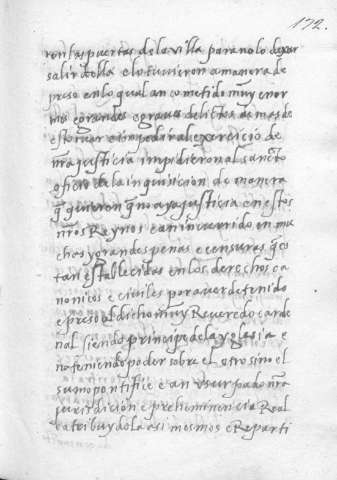 172.
ron las puertas de la villa para no lo dexar
salir della e lo tuvieron a manera de
preso en lo qual an cometido muy enor
mes e grandes e graues delictos de mas de
estoruar e impedir al exerçiçio de
n̄ra justicia impidieron al sancto
ofiçio de la inquisicion de manera
q̄ quieren q̄ no aya justicia en estos
n̄ros Reynos e an incurrido en mu
chas y grandes penas e censuras q̄ es
tan establecidas en los derechos ca
nonicos e ciuiles por aver detenido
e preso al dicho muy Reuerēdo carde
nal siendo principe de la yglesia e
no teniendo poder sobre el otro sino el
sumo pontifiçe e an vsurpado n̄ra
jurisdiçion e preheminençia Real
atribuydola a si mesmos e Reparti